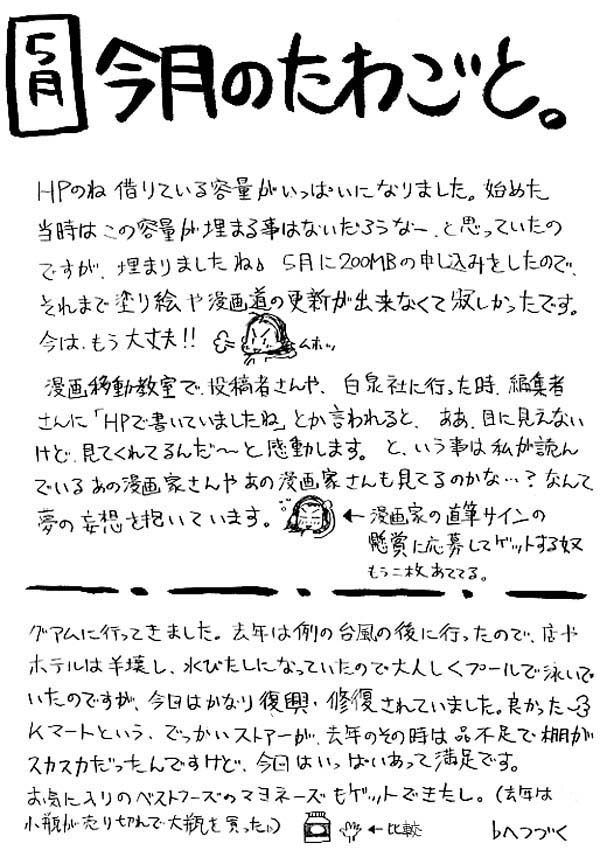 5月
今月のたわごと。
HPのね 借りている容量がいっぱいになりました。始めた
当時はこの容量が埋まる事はないだろうなー、と思っていたの
ですが、埋まりましたね♪ 5月に200MBの申し込みをしたので、
それまで塗り絵や漫画道の更新が出来なくて寂しかったです。
今は、もう大丈夫!! ムホッ
漫画移動教室で、投稿者さんや、白泉社に行った時、編集者
さんに「HPで書いていましたね」とか言われると、ああ、目に見えない
けど、見てくれてるんだ〜と感動します。と、いう事は私が読ん
でいるあの漫画家さんやあの漫画家さんも見てるのかな…?なんて
夢の妄想を抱いています。
←漫画家の直筆サインの
懸賞に応募してゲットする奴
もう二枚あててる。
グアムに行ってきました。去年は例の台風の後に行ったので、店や
ホテルは半壊し、水びたしになっていたので大人しくプールで泳いで
いたのですが、今日はかなり復興・修復されていました。良かった
Kマートという、でっかいストアーが、去年のその時は品不足で棚が
スカスカだったんですけど、今回はいっぱいあって満足です。
お気に入りのベストフーズのマヨネーズもゲットできたし。(去年は
小瓶が売り切れで大瓶を買った。)
←比較
つづく